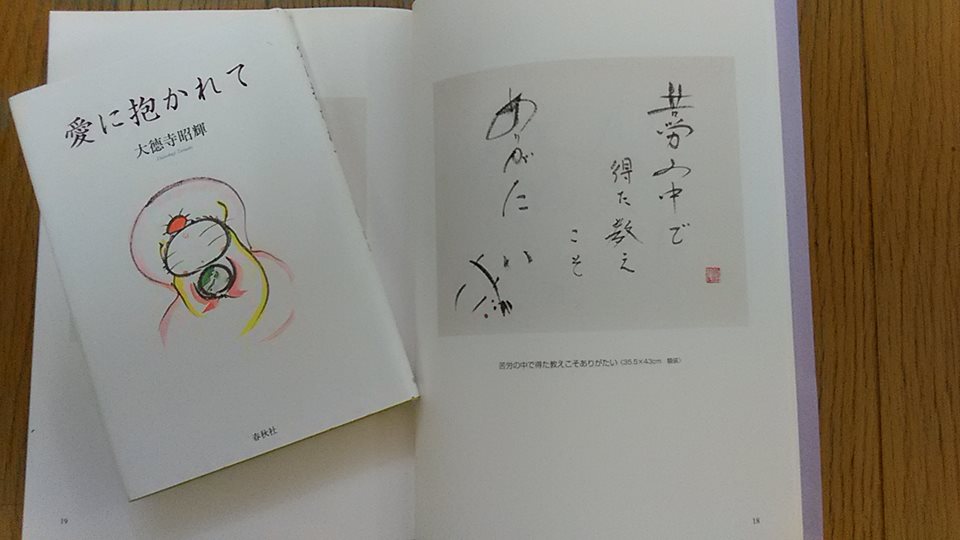 愛に抱かれて
大徳寺昭輝
春秋社
19
苦労の中で
得た教え
こそ
ありがたい
苦労の中で得た教えこそありがたい (35.5×43cm 額装)
18